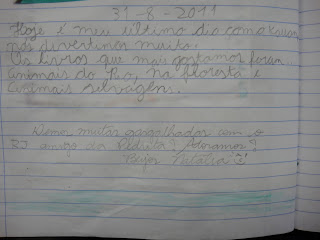 31-8-2011
Hoje é meu último dia com a
nos divertimos muito!
Os livros que mais gostamos foram...
animais do Rio, na floresta e
animais selvagens.
Demos muitas gargalhadas com o
amigo da Pedrita? Adoramos?
Beijos Natália